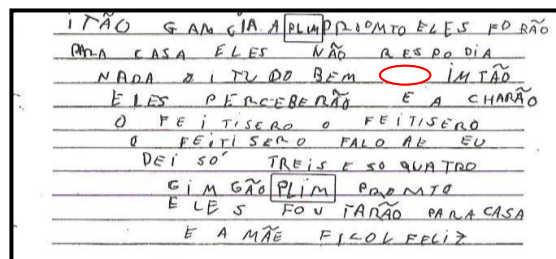 ITÃO GAMGIA A PLIM PROMTO ELES FORÃO
PARA CASA ELES NÃO RESPODIA
NADA DITUDO BEM IMTÃO
ELES PERCEBERÃO E A CHARÃO
O FEITISERO O FEITISERO
O FEITISERO FALO AE EU
DEI SÓ TREIS E SO QUATRO
GIMGÃO PLIM PROMTO
ELES FOUTARÃO PARA CASA
E A MÃE FICOL FELIZ